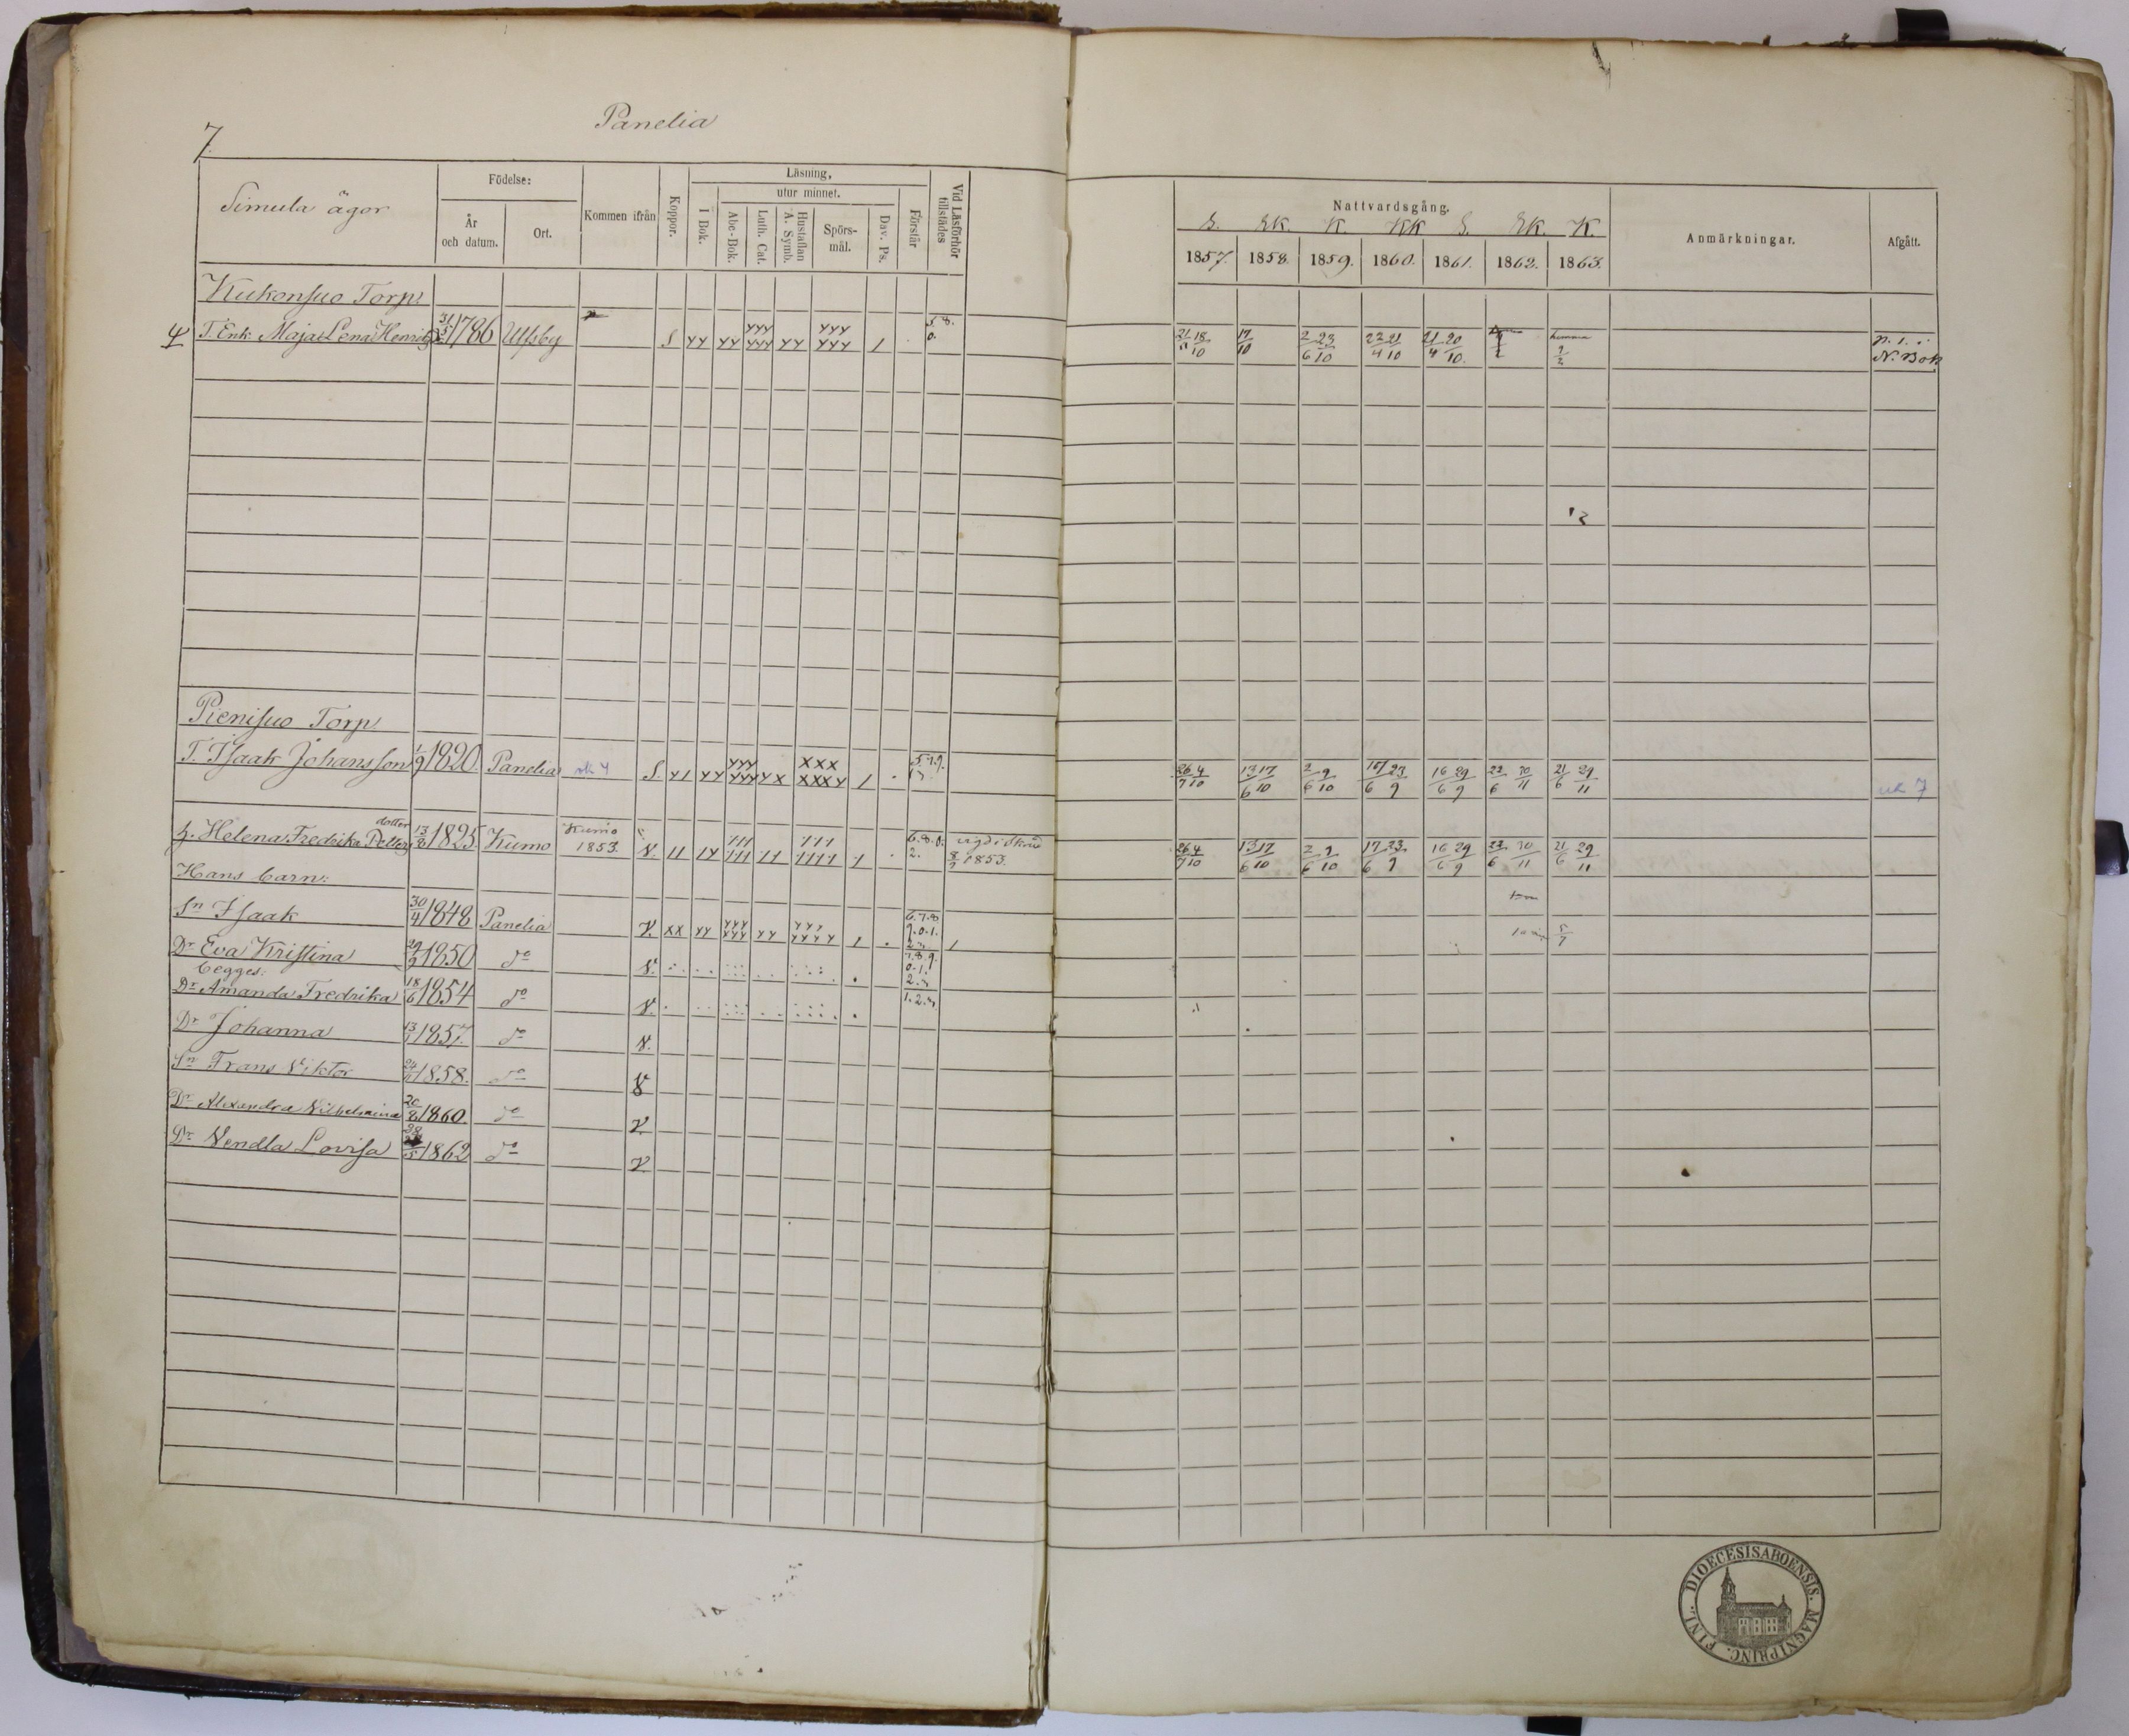 7.
Panelia
Simula ägor
Födelse:
År och datum.
Ort.
Kommen ifrån
Koppor.
Läsning,
I Bok.
utur minnet.
Abc-Bok.
Luth. Cat.
Hustaflan A. Symb.
Spörs-mål.
Dav. Ps.
Förstår
Vid Läsförhör tillstädes
Nattvardsgång.
S. SK. K. KK S. SK. K.
1857. 1858. 1859. 1860. 1861. 1862. 1863.
Anmärkningar.
Afgått.
Kukonsuo Torp.
T. Enk. Maja Lena Henriks 31/5 1786 Ulfsby S yy yy yyy yyy yy yyy yyy 1 5.8. 0. 21 18/10 17/10 2/6 23/10 22/4 21/10 21/4 20/10 hemma n. 1. i N. Bok
Pienisuo Torp.
T. Isaak Johansson 1/9 1820. Panelia S. y1 yy yyy yyy y x xxx xxxy 1 . 5.7.9. 26/7 4/10 13/6 17/10 2/6 9/10 17/6 23/9 16/6 29/9 22/6 30/11 21/6 29/11
H. Helena Fredrika Petters dotter 13/8 1825 Kumo Kumo 1853. V. 11 1y 111 111 11 111 1111 1 . 6.8.0. 2. vigd i Åkind 1853. 26/7 4/10 13/6 17/10 2/6 9/10 17/6 23/9 16/6 29/9 22/6 30/11 21/6 29/11
Hans barn:
Sn Isaak 30/4 1848 Panelia V. xx yy yyy yyy yy yyy yyyy 1 . 6.7.8 9.0.1. 1 5/7
Dr Eva Kristina 29/9 1850 do V. 7.8.9. 0.1.
begges:
Dr Amanda Fredrika 18/6 1854 do V. 1.2.3
Dr Johanna 1857. do V.
Sn Frans Viktor 1858. do V
Dr Alexandra Vilhelmina 20/8 1860. do V.
Dr Vendla Lovisa 1862 do V.
DIOECESIS ABOENSIS. MAGNI PRINC. FINL.